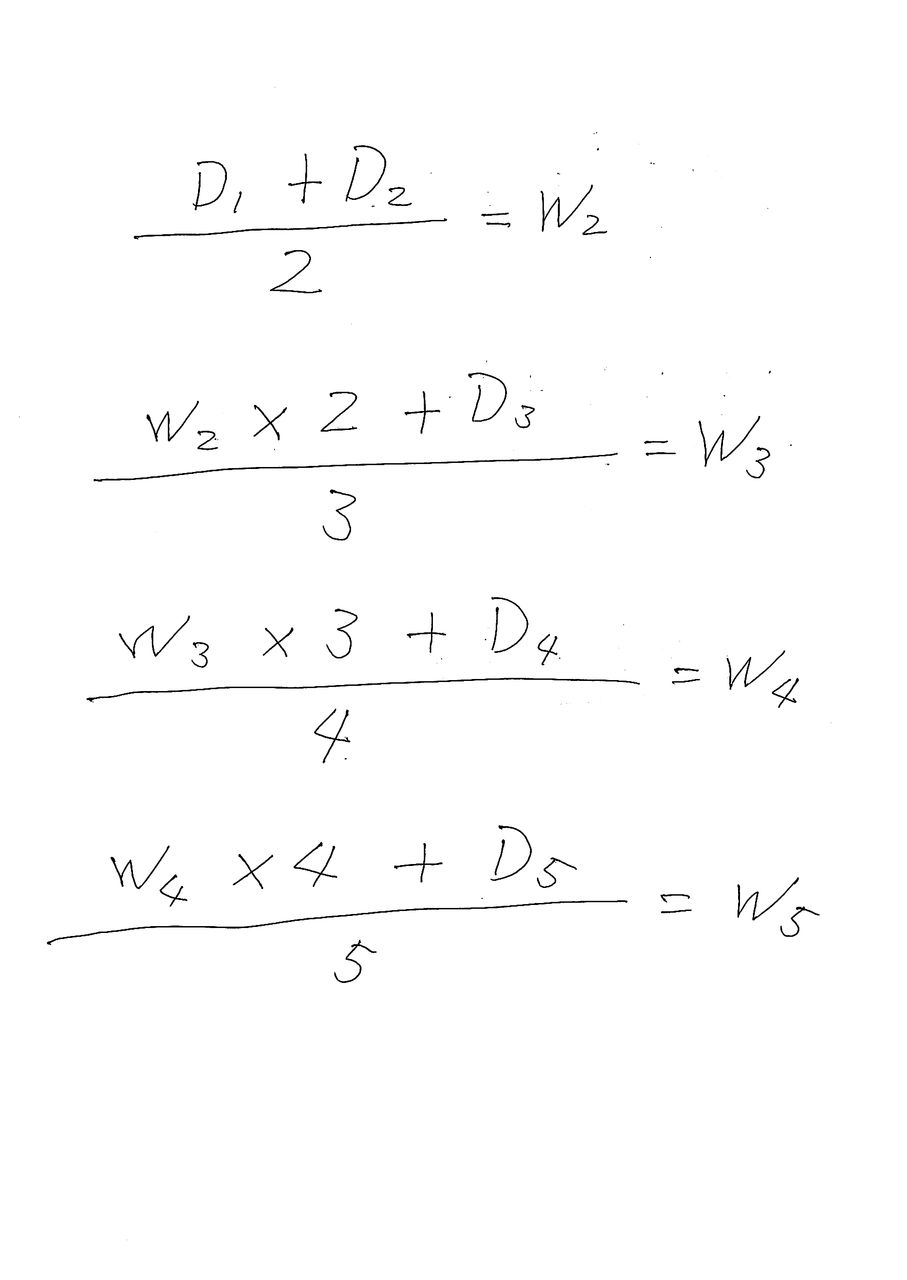 D₁ + D₂
2
= W₂
W₂ × 2 + D₃
3
= W₃
W₃ × 3 + D₄
4
= W₄
W₄ × 4 + D₅
5
= W₅